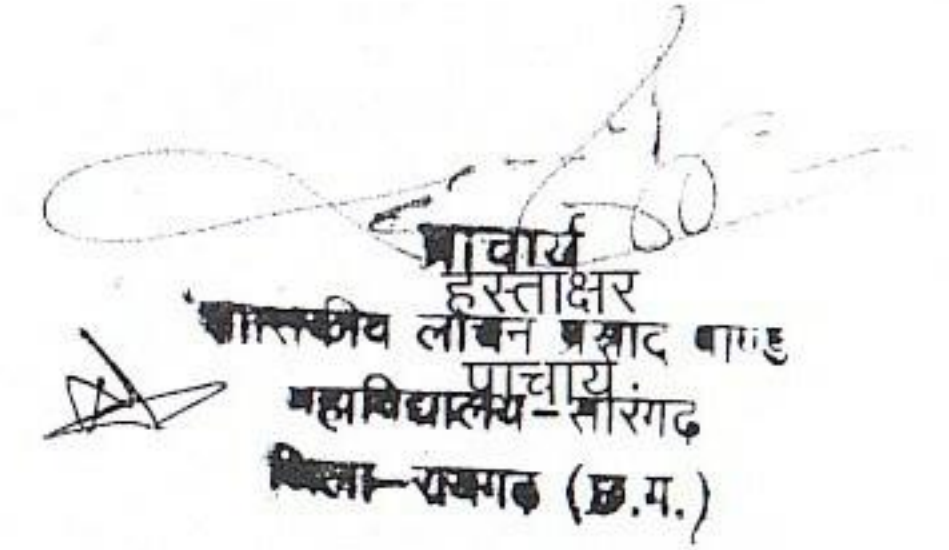 प्राचार्य
हस्ताक्षर
शासकीय लोचन प्रसाद पाण्डे
प्राचार्य
महाविद्यालय – सारंगढ
जिला – रायगढ (छ.ग.)